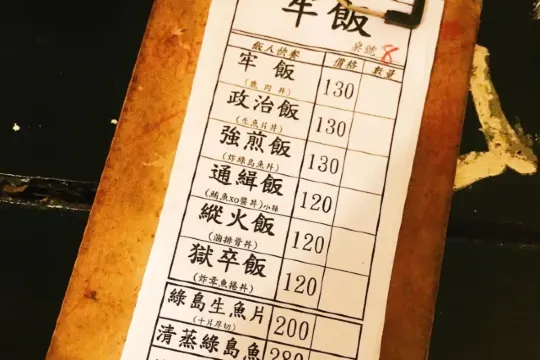 牢飯
桌號 8
飯人飲素 價格 數量
牢飯 130
(鹿肉丼)
政治飯 130
(生魚片丼)
強煎飯 130
(炸綠島魚丼)
通緝飯 120
(鮪魚xo醬丼)小辣
縱火飯 120
(滷排骨丼)
獄卒飯 120
(炸章魚捲丼)
綠島生魚片 200
(十片厚切)
清蒸綠島魚 280